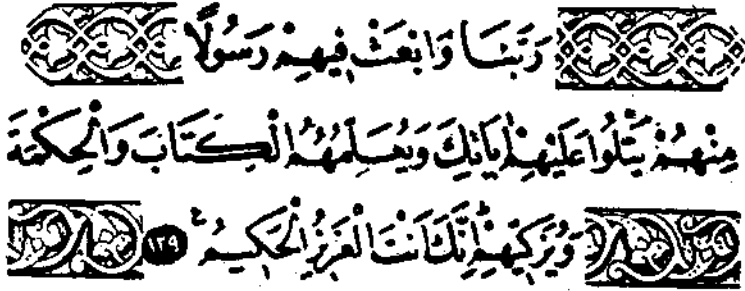 رَبَّنَا وَابْعَثْ فِيهِمْ رَسُولًا
مِنْهُمْ يَتْلُوا عَلَيْهِمْ اٰيَاتِكَ وَيُعَلِّمُهُمُ الْكِتَابَ وَالْحِكْمَةَ
وَيُزَكِّيهِمْ اِنَّكَ اَنْتَ الْعَزِيزُ الْحَكِيمُ ۟ ١٢٩